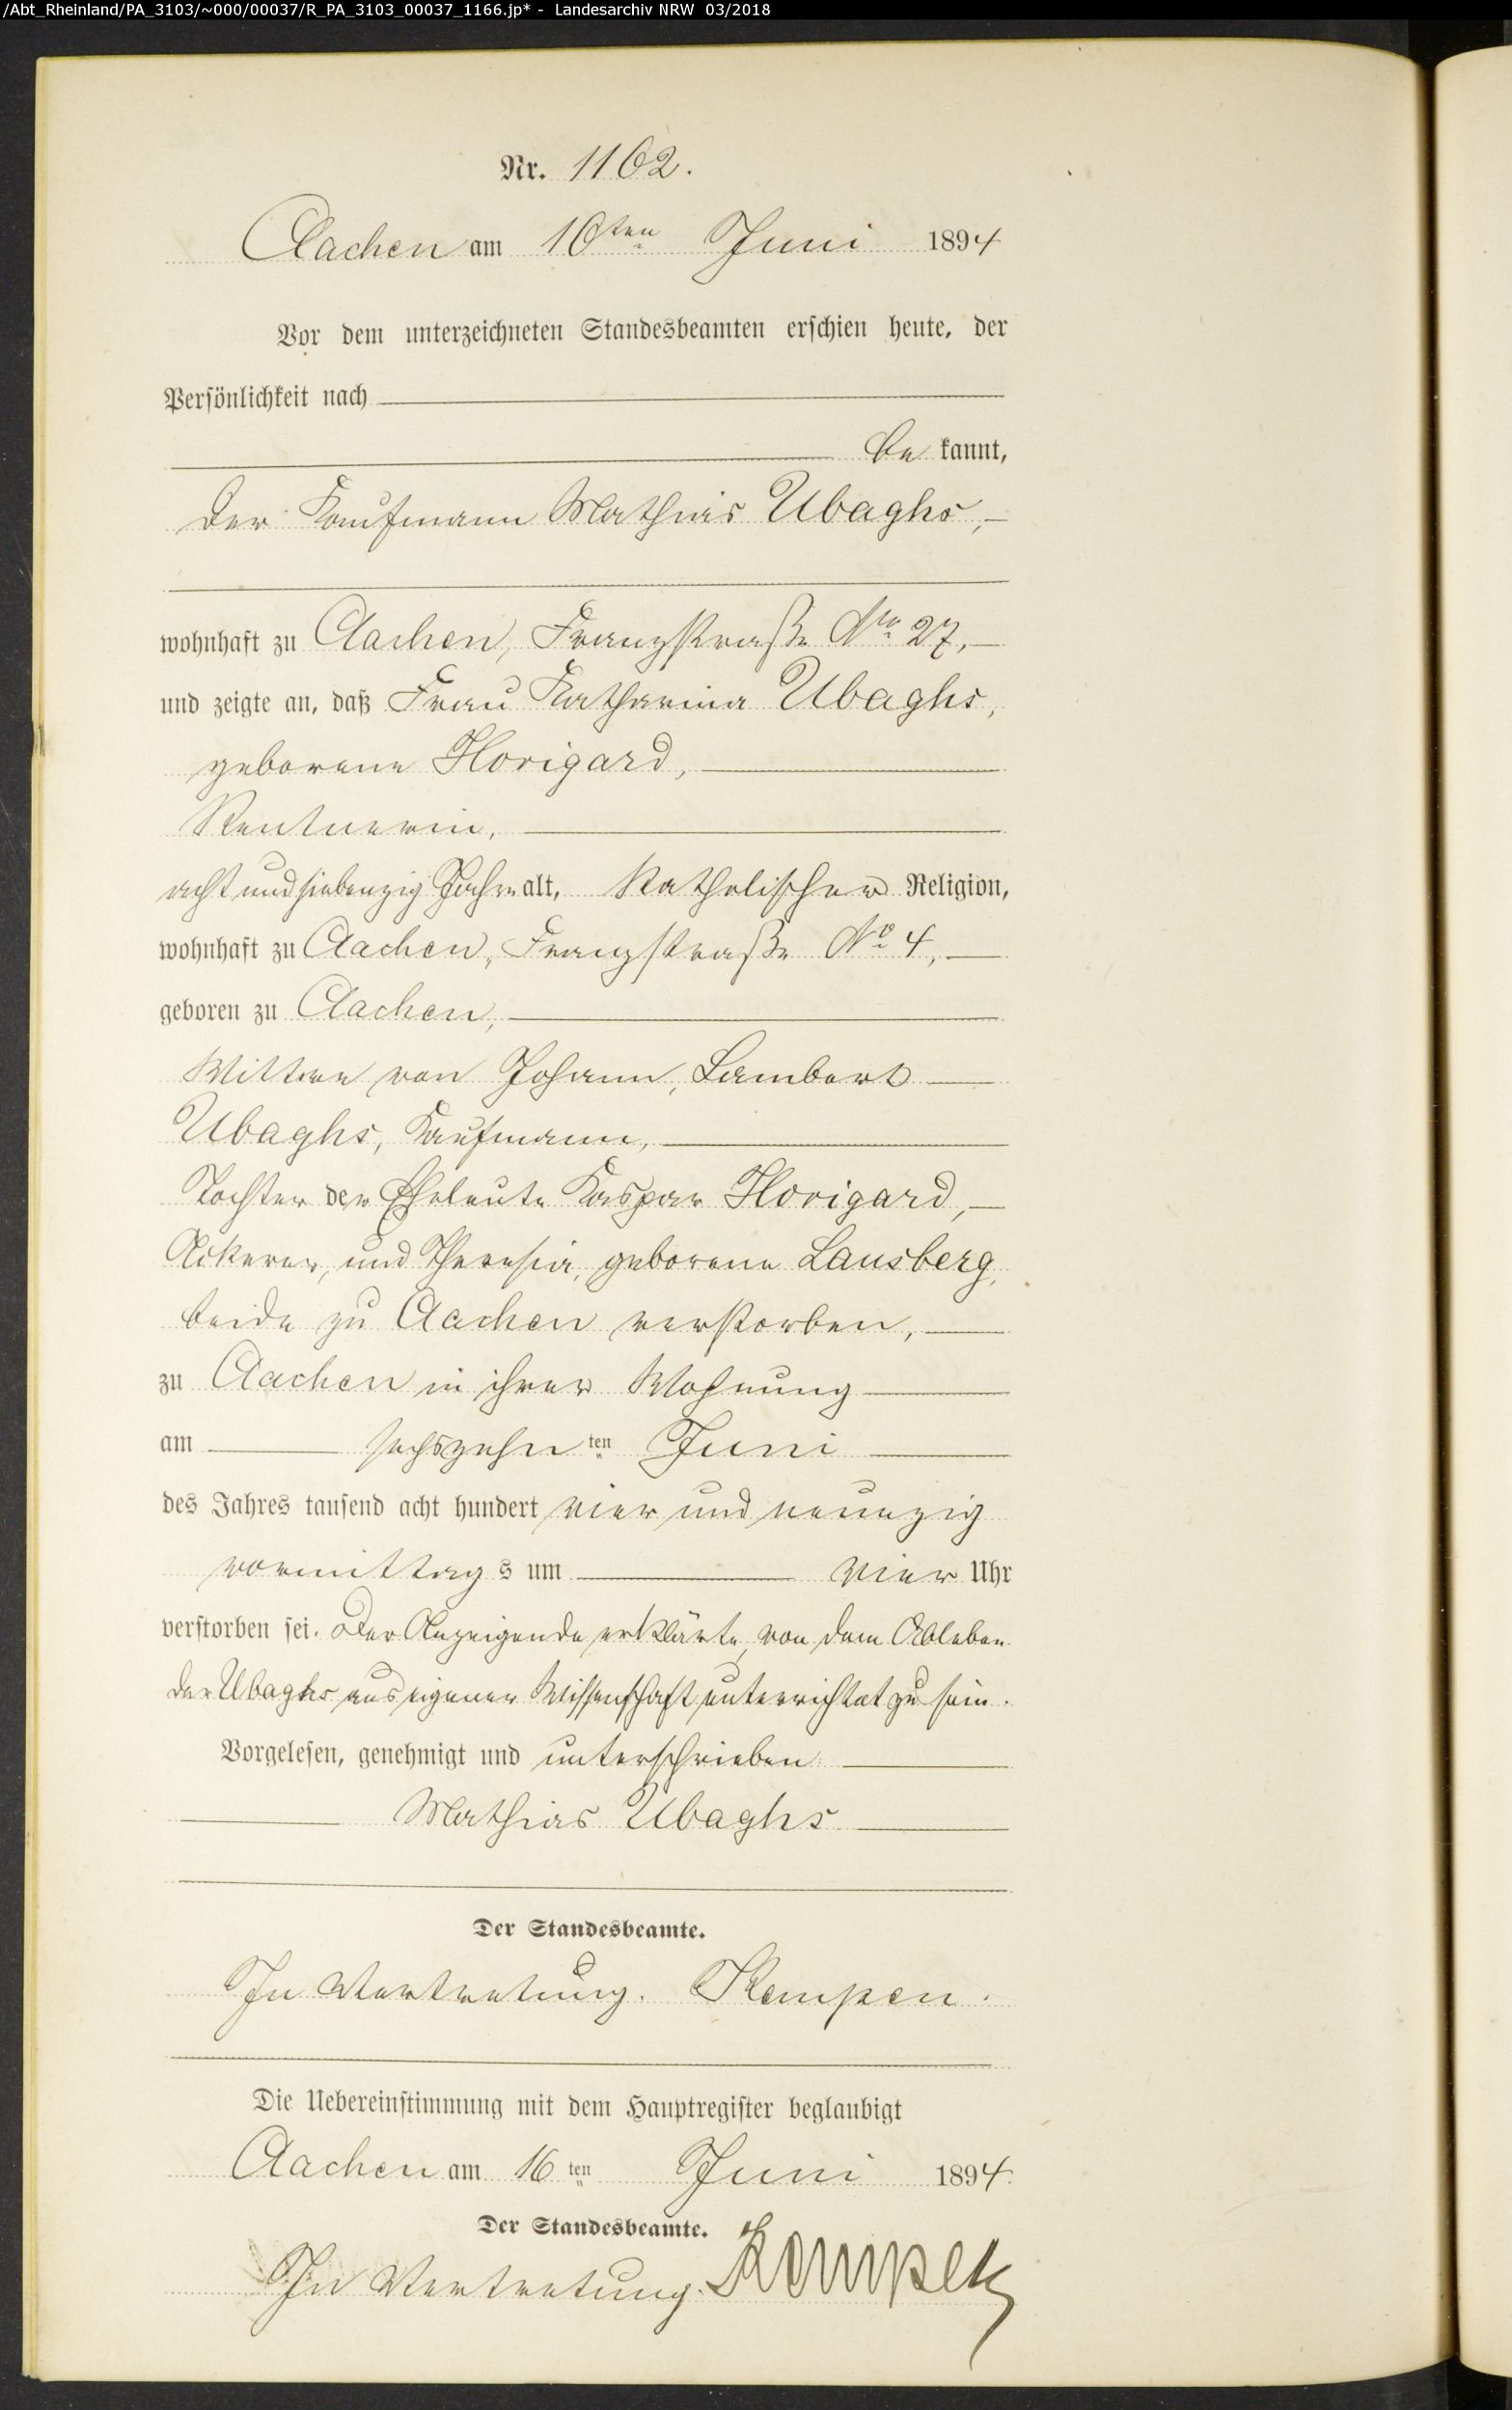 /Abt_Rheinland/PA_3103/~000/00037/R_PA_3103_00037_1166.jp* - Landesarchiv NRW 03/2018
Nr. 1162.
Aachen am 16ten Juni 1894
Vor dem unterzeichneten Standesbeamten erschien heute, der
Persönlichkeit nach
be kannt,
der Kaufmann Mathias Ubaghs,
wohnhaft zu Aachen, Franzstraße Nro 27,
und zeigte an, daß Frau Katharina Ubaghs,
geborene Horigard,
Rentnerin,
acht und siebenzig Jahre alt, Katholischer Religion,
wohnhaft zu Aachen, Franzstraße No 4,
geboren zu Aachen,
Wittwe von Johann, Lambert
Ubaghs, Kaufmann,
Tochter der Eheleute Kaspar Horigard,
Ackerer, und Theresia, geborene Lausberg,
beide zu Aachen verstorben,
zu Aachen in ihrer Wohnung
am sechszehn ten Juni
des Jahres tausend acht hundert vier und neunzig
vormittag s um vier Uhr
verstorben sei. Der Anzeigende erklärte, von dem Ableben
der Ubaghs aus eigener Wissenschaft unterrichtet zu sein.
Vorgelesen, genehmigt und unterschrieben
Mathias Ubaghs
Der Standesbeamte.
In Vertretung. Kempen.
Die Uebereinstimmung mit dem Hauptregister beglaubigt
Aachen am 16 ten Juni 1894
Der Standesbeamte.
In Vertretung. Kempen